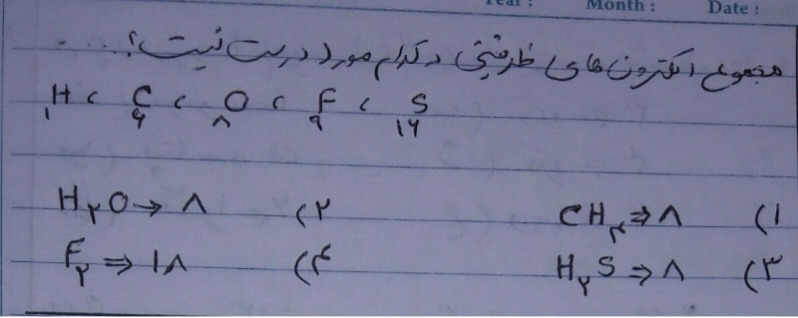 Year : Month : Date :
مجموع الکترون های ظرفیتی در کدام مورد درست نیست؟...
₁H ، ₆C ، ₈O ، ₉F ، ₁₆S
۱) CH₄ ⇒ ۸ ۲) H₂O → ۸
۳) H₂S ⇒ ۸ ۴) F₂ ⇒ ۱۸